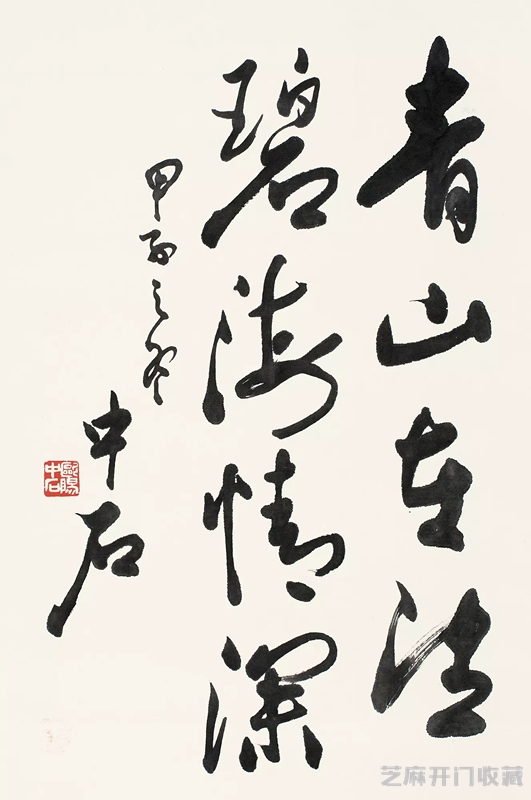 青山在望
碧海情深
甲子之冬
中石
歐陽中石
芝麻开门收藏